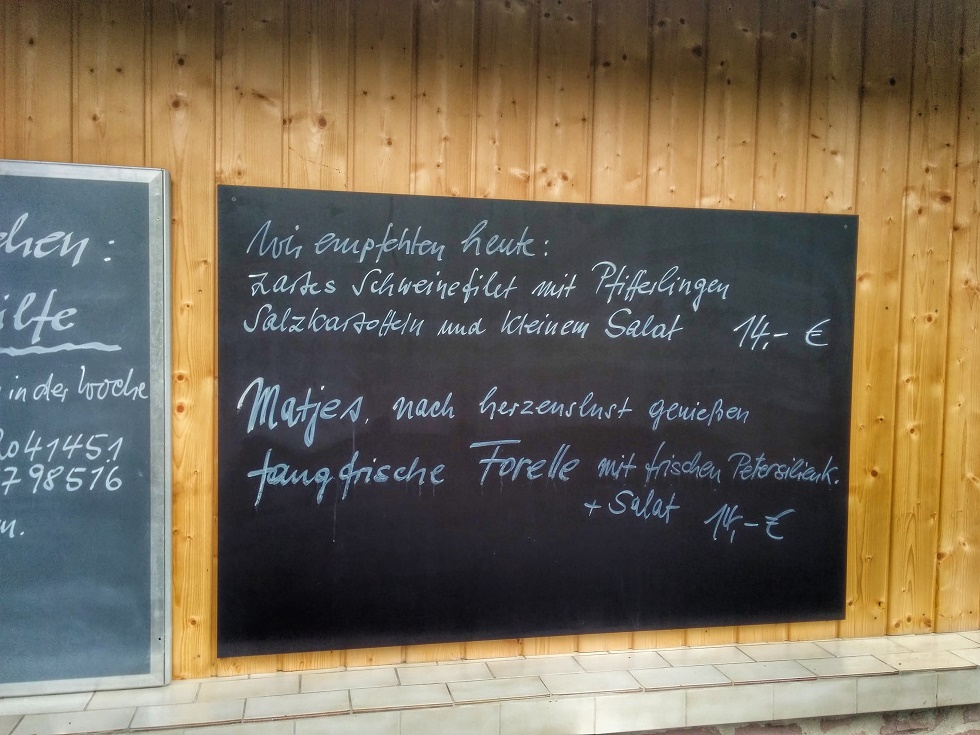 chen :
ilfe
in der Woche
2041451
798516
n.
Wir empfehlen heute:
zartes Schweinefilet mit Pfifferlingen
Salzkartoffeln und kleinem Salat 14,- €
Matjes, nach herzenslust genießen
fangfrische Forelle mit frischen Petersilienk.
+ Salat 14,- €